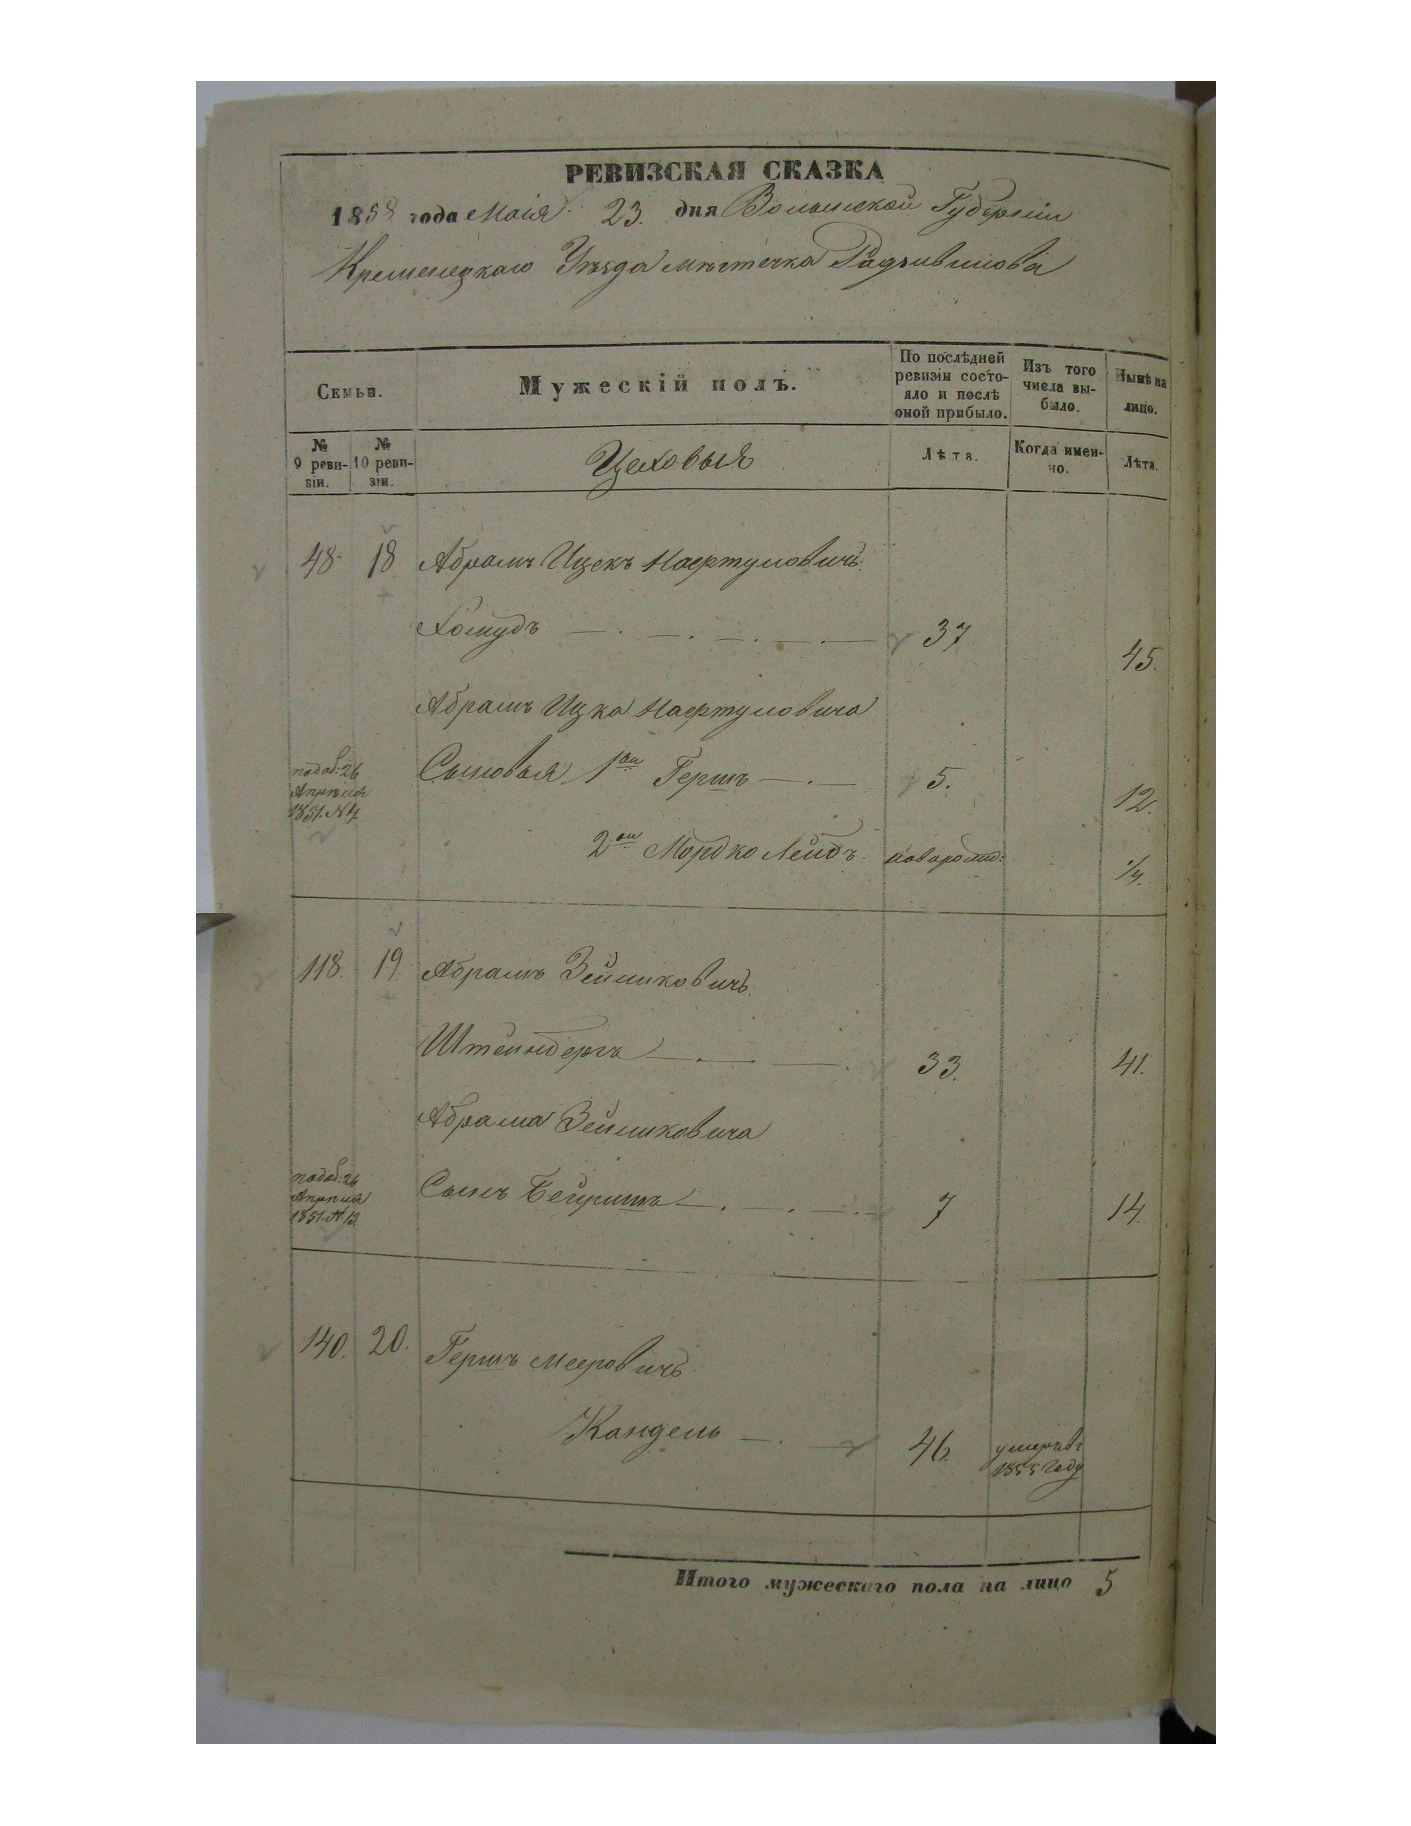 РЕВИЗСКАЯ СКАЗКА
1858 года Маія 23. дня Волынской Губерніи
Кременецкаго Уѣзда мѣстечка Радзивилова
Семьи.
Мужескій полъ.
По послѣдней ревизіи состояло и послѣ оной прибыло.
Изъ того числа выбыло.
Нынѣ на лицо.
№ 9 ревизіи.
№ 10 ревизіи.
Цеховыя
Лѣта.
Когда именно.
Лѣта.
48. 18 Абрамъ Ицекъ Нафтуловичъ
Хомудъ 37 45.
Абрамъ Ицка Нафтуловича
подоб. 26 Апрѣля 1851. № 4
Сыновья 1ый Гершъ 5. 12.
2ой Мордко Лейбъ новорожд: 1/4.
118. 19 Абрамъ Зейликовичъ
Штейнбергъ 33. 41.
Абрама Зейликовича
подоб. 26 Апрѣля 1851. № 13
Сынъ Бейришъ 7 14.
140. 20. Гершъ Мееровичъ
Кандель 46. умеръ въ 1855 году
Итого мужескаго пола на лицо 5